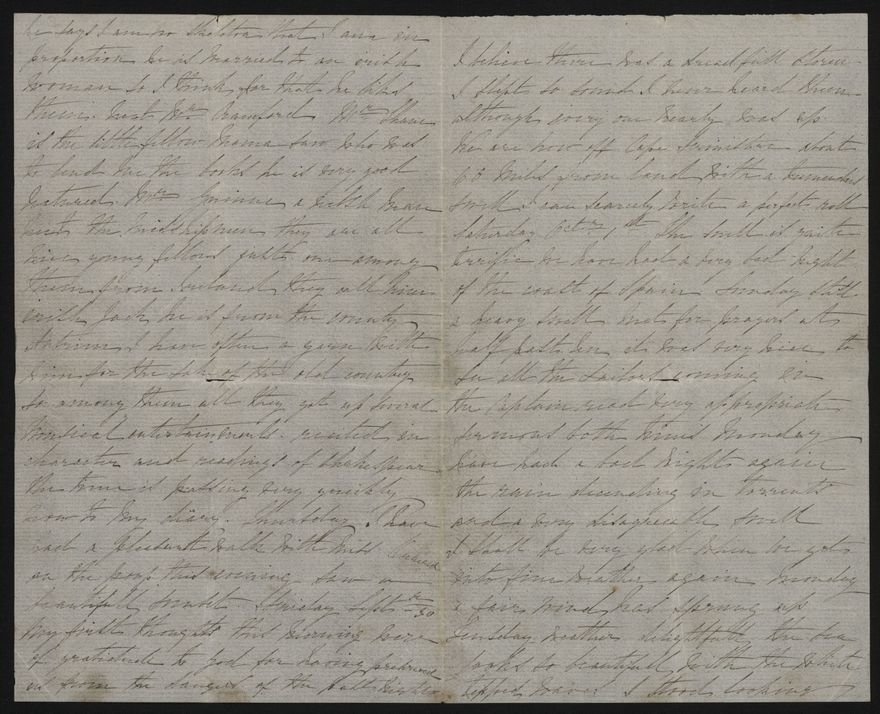 he says I am no skeleton that I am in
proportion he is married to an irish
woman so I think for that he likes
them. Next Mr Crawford Mr Shaw
is the little fellow Mama saw who was
to lend me the books he is very good
natured Mr a Welsh man
next the Midshipmen they are all
nice young fellows just one among
them from Ireland they all
Irish Jack he is from the county
Antrim I have often a yarn with
him for the sake of the old country
So among them all they get up several
Musical entertainments. recited in
character and readings of Shakespear
The time is passing very quickly
now to my diary. Thursday I have
had a pleasant walk with Miss
on the poop this evening saw a
beautifull sunset. Friday Sept 30
My first thoughts this morning were
of gratitude to God for having preserved
us from the dangers of the past night
I believe there was a dreadfull storm
I slept so sound I never heard them
although every one nearly was up
We are now off Cape Finisterre about
60 miles from land with a tremendous
swell I can scarcely write a perfect roll
Saturday Octr 1st The swell is quite
terrific we have had a very bad night
of the coast of Spain Sunday still
a heavy swell met for prayers at
half past ten it was very nice to
see all the sailors coming in
the Captain read very appropriate
sermons both times Monday
have had a bad night again
the rain descending in torrents
and a very disagreeable swell
I shall be very glad when we get
into fine weather again Monday
a fair wind has sprung up
Tuesday weather delightfull the sea
looks so beautifull with the white
topped waves I stood looking